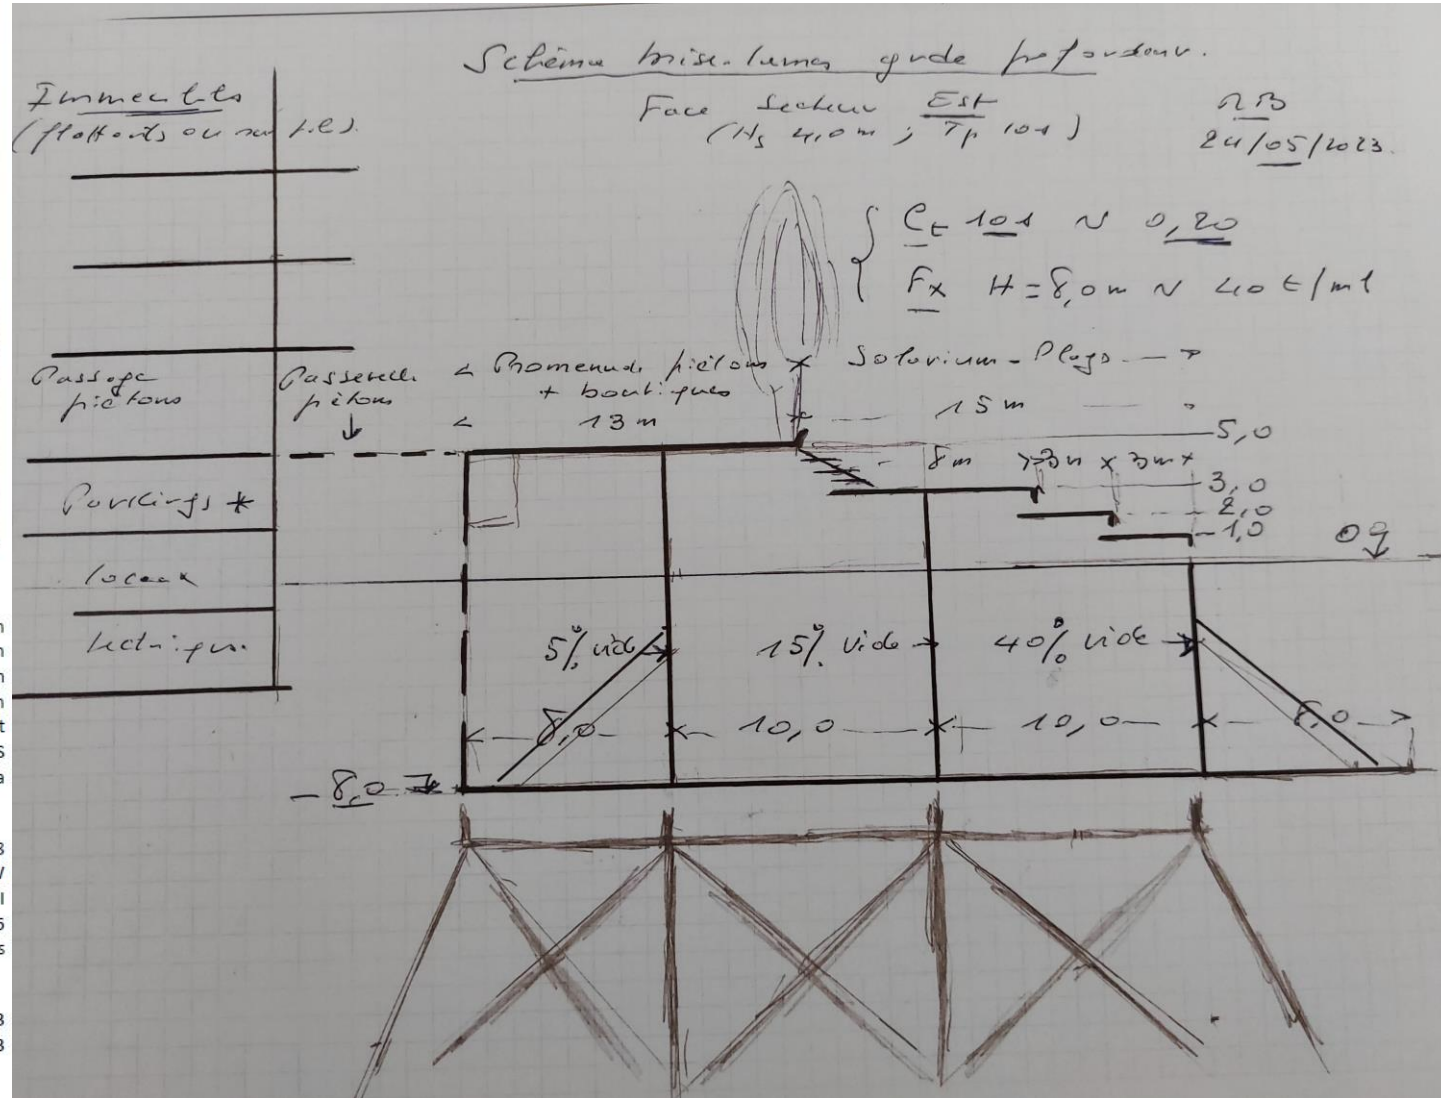 Schéma brise-lames grde profondeur.
Immeubles
(flottants ou sur pil.)
Face Secteur Est
(Hs 4,0 m ; Tp 10s)
RB
24/05/2023.
Ct 10s ~ 0,20
Fx H=8,0m ~ 40t/ml
Passage
piétons
Passerelle
piétons
Promenade piétons
+ boutiques
13 m
Solarium-Plage
15 m
5,0
8m
3m
3m
3,0
2,0
1,0
Parkings *
locaux
techniques.
5% vide
15% vide
40% vide
10,0
10,0
-8,0